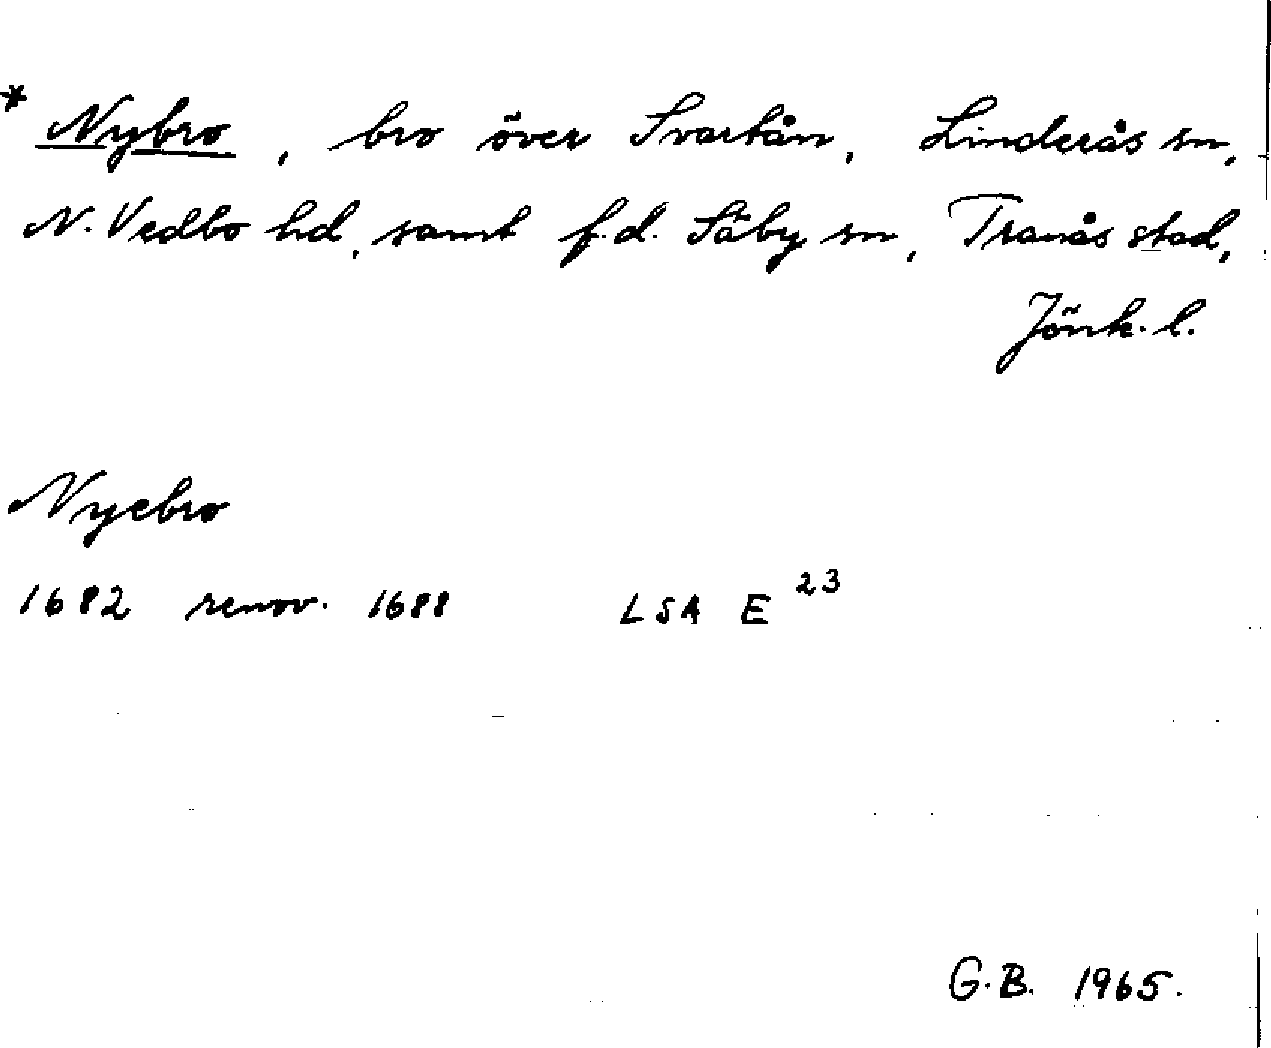 * Nybro, bro över Svartån, Linderås sn,
N. Vedbo hd, samt f.d. Säby sn, Tranås stad,
Jönk. l.
Nyebro
1682 renov. 1688 LSA E 23
G.B. 1965.